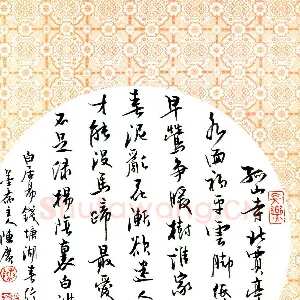 孤山寺北賈亭
水面初平雲脚低
早鶯爭暖樹誰家
春泥亂花漸欲迷人
才能沒馬蹄最愛
不足綠楊陰裏白沙
白居易錢塘湖春行